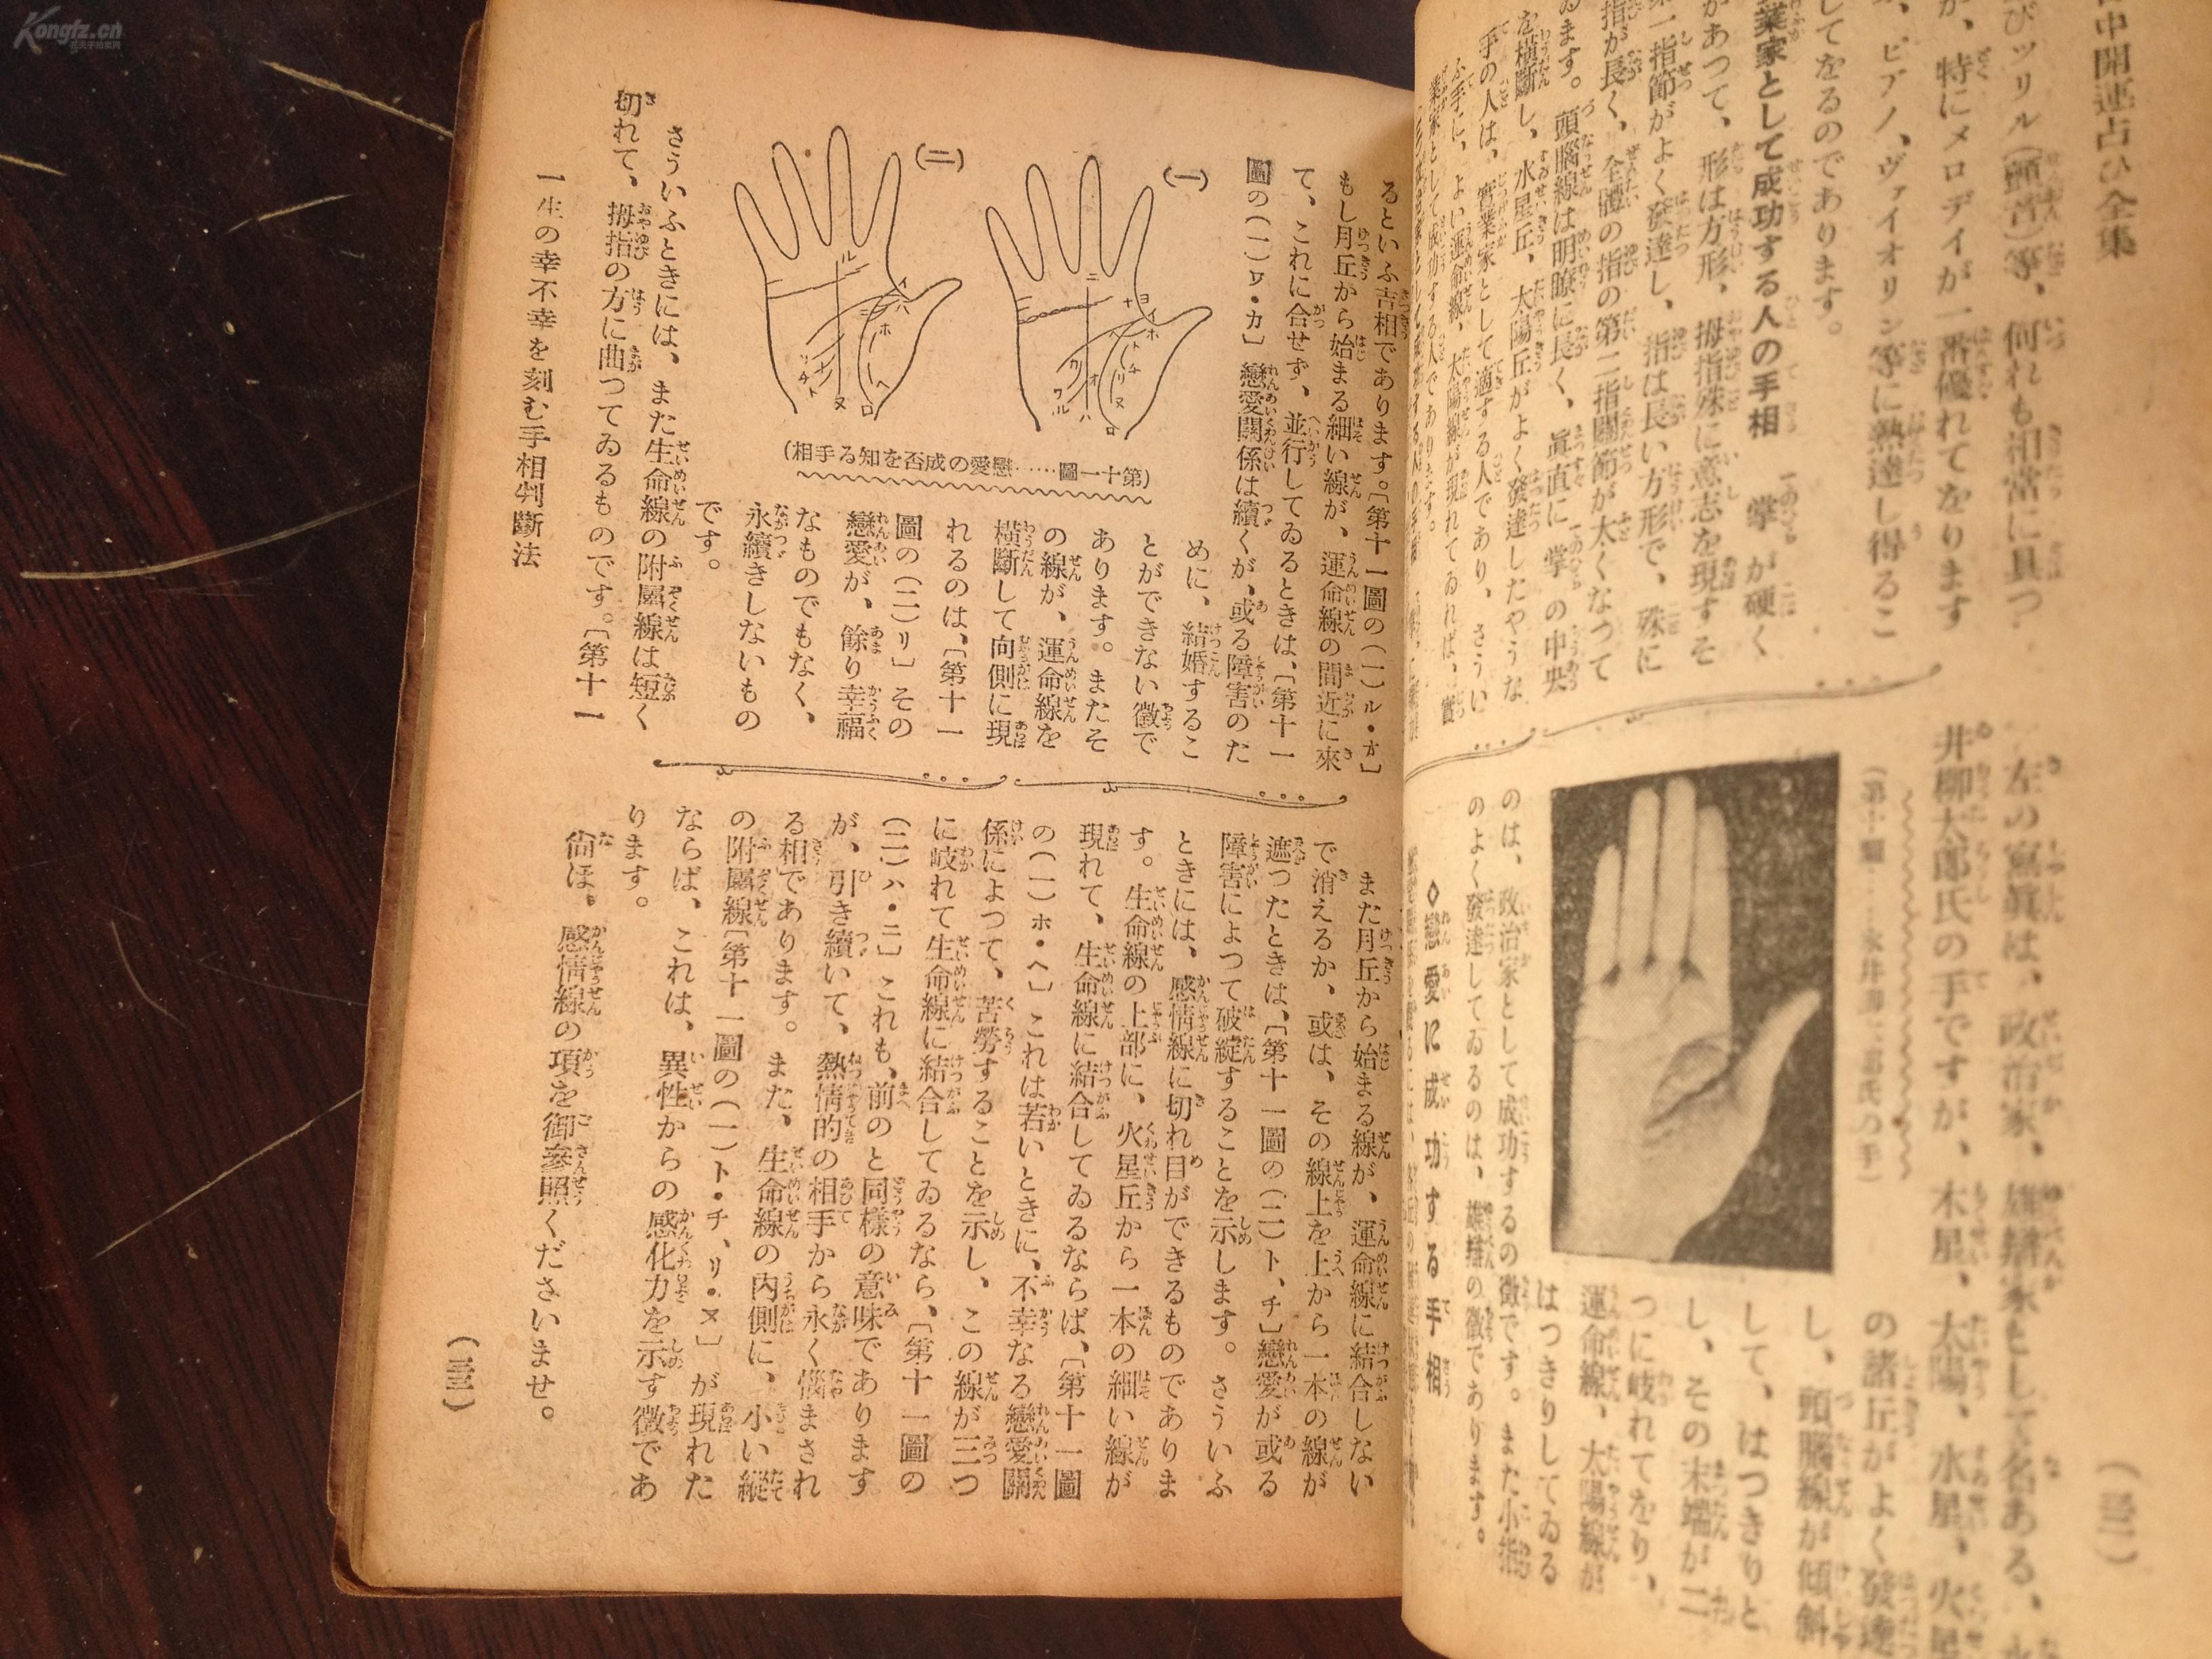 中開運占ひ全集
びツリル(顫音)等、何れも相當に具つ
が、特にメロデイが一番優れてをります
、ピアノ、ヴァイオリン等に熟達し得るこ
してをるのであります。
業家として成功する人の手相 掌が硬く
があつて、形は方形、拇指殊に意志を現すそ
第一指節がよく發達し、指は長い方形で、殊に
指が長く、全體の指の第二指關節が太くなつて
ゐます。頭腦線は明瞭に長く、眞直に掌の中央
を橫斷し、水星丘、太陽丘がよく發達したやうな
手の人は、實業家として適する人であり、さうい
ふ手に、よい運命線、太陽線が現れてゐれば、實
業家として成功する人であります。
左の寫眞は、政治家、雄辯家として名ある、
井柳太郎氏の手ですが、木星、太陽、水星、火星
の諸丘がよく發達
し、頭腦線が傾斜
して、はつきりと
し、その末端が二
つに岐れてをり、
運命線、太陽線が
はつきりしてゐる
のは、政治家として成功するの徵です。また小指
のよく發達してゐるのは、雄辯の徵であります。
◇戀愛に成功する手相
(三二)
るといふ吉相であります。〔第十一圖の(一)ル・ヲ〕
もし月丘から始まる細い線が、運命線の間近に來
て、これに合せず、並行してゐるときは、〔第十一
圖の(一)ワ・カ〕戀愛關係は續くが、或る障害のた
めに、結婚するこ
とができない徵で
あります。またそ
の線が、運命線を
橫斷して向側に現
れるのは、〔第十一
圖の(二)リ〕その
戀愛が、餘り幸福
なものでもなく、
永續きしないもの
です。
(一)
(二)
(相手る知を否成の愛戀……圖一十第)
さういふときには、また生命線の附屬線は短く
切れて、拇指の方に曲つてゐるものです。〔第十一
また月丘から始まる線が、運命線に結合しない
で消えるか、或は、その線上を上から一本の線が
遮つたときは、〔第十一圖の(二)ト、チ〕戀愛が或る
障害によつて破綻することを示します。さういふ
ときには、感情線に切れ目ができるものでありま
す。生命線の上部に、火星丘から一本の細い線が
現れて、生命線に結合してゐるならば、〔第十一圖
の(一)ホ・ヘ〕これは若いときに、不幸なる戀愛關
係によつて、苦勞することを示し、この線が三つ
に岐れて生命線に結合してゐるなら、〔第十一圖の
(二)ハ・ニ〕これも、前のと同樣の意味であります
が、引き續いて、熱情的の相手から永く惱まされ
る相であります。また、生命線の內側に、小い縱
の附屬線〔第十一圖の(一)ト・チ、リ・ヌ〕が現れた
ならば、これは、異性からの感化力を示す徵であ
ります。
尙ほ、感情線の項を御參照くださいませ。
一生の幸不幸を刻む手相判斷法
(三三)
Kongfz.cn